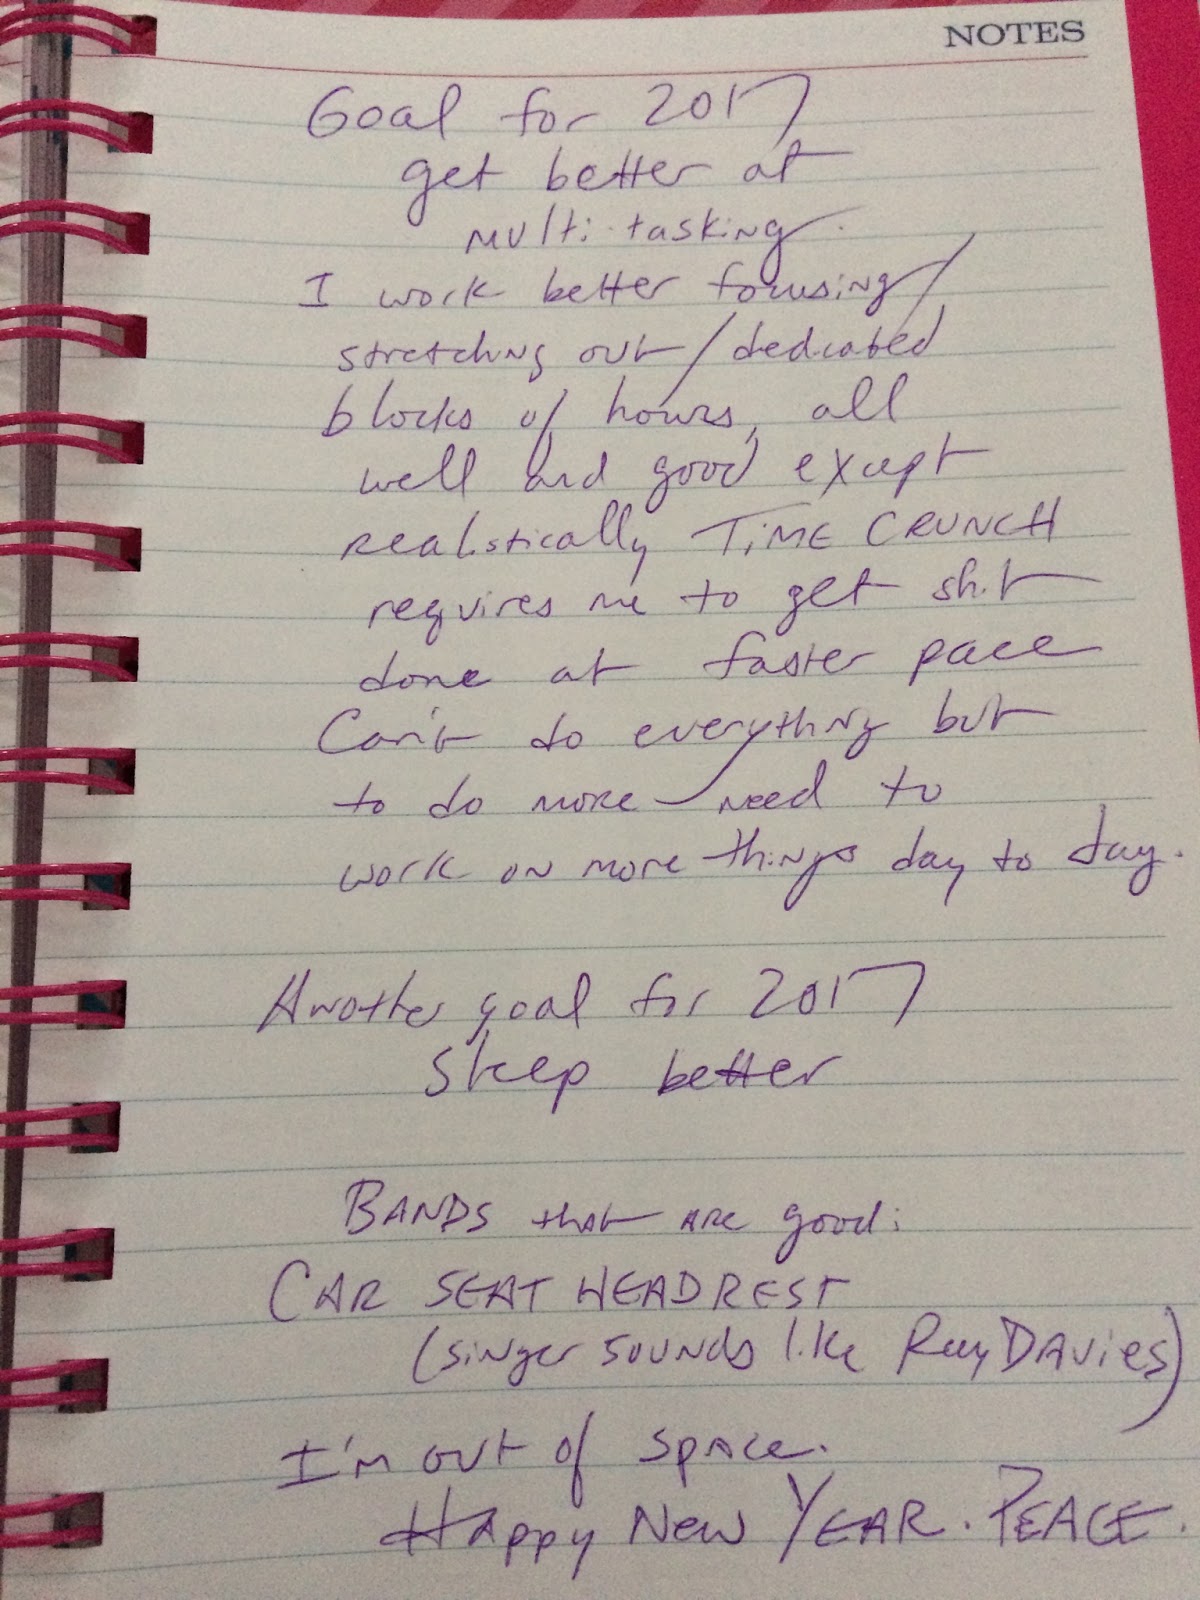 NOTES
Goal for 2017
get better at
multi-tasking.
I work better focusing/
stretching out/dedicated
blocks of hours, all
well and good except
realistically TiME CRUNCH
requires me to get shit
done at faster pace
Can't do everything but
to do more need to
work on more things day to day.
Another goal for 2017
sleep better
BANDS that are good:
CAR SEAT HEADREST
(singer sounds like Ray DAvies)
I'm out of space.
Happy New YEAR. PEACE.